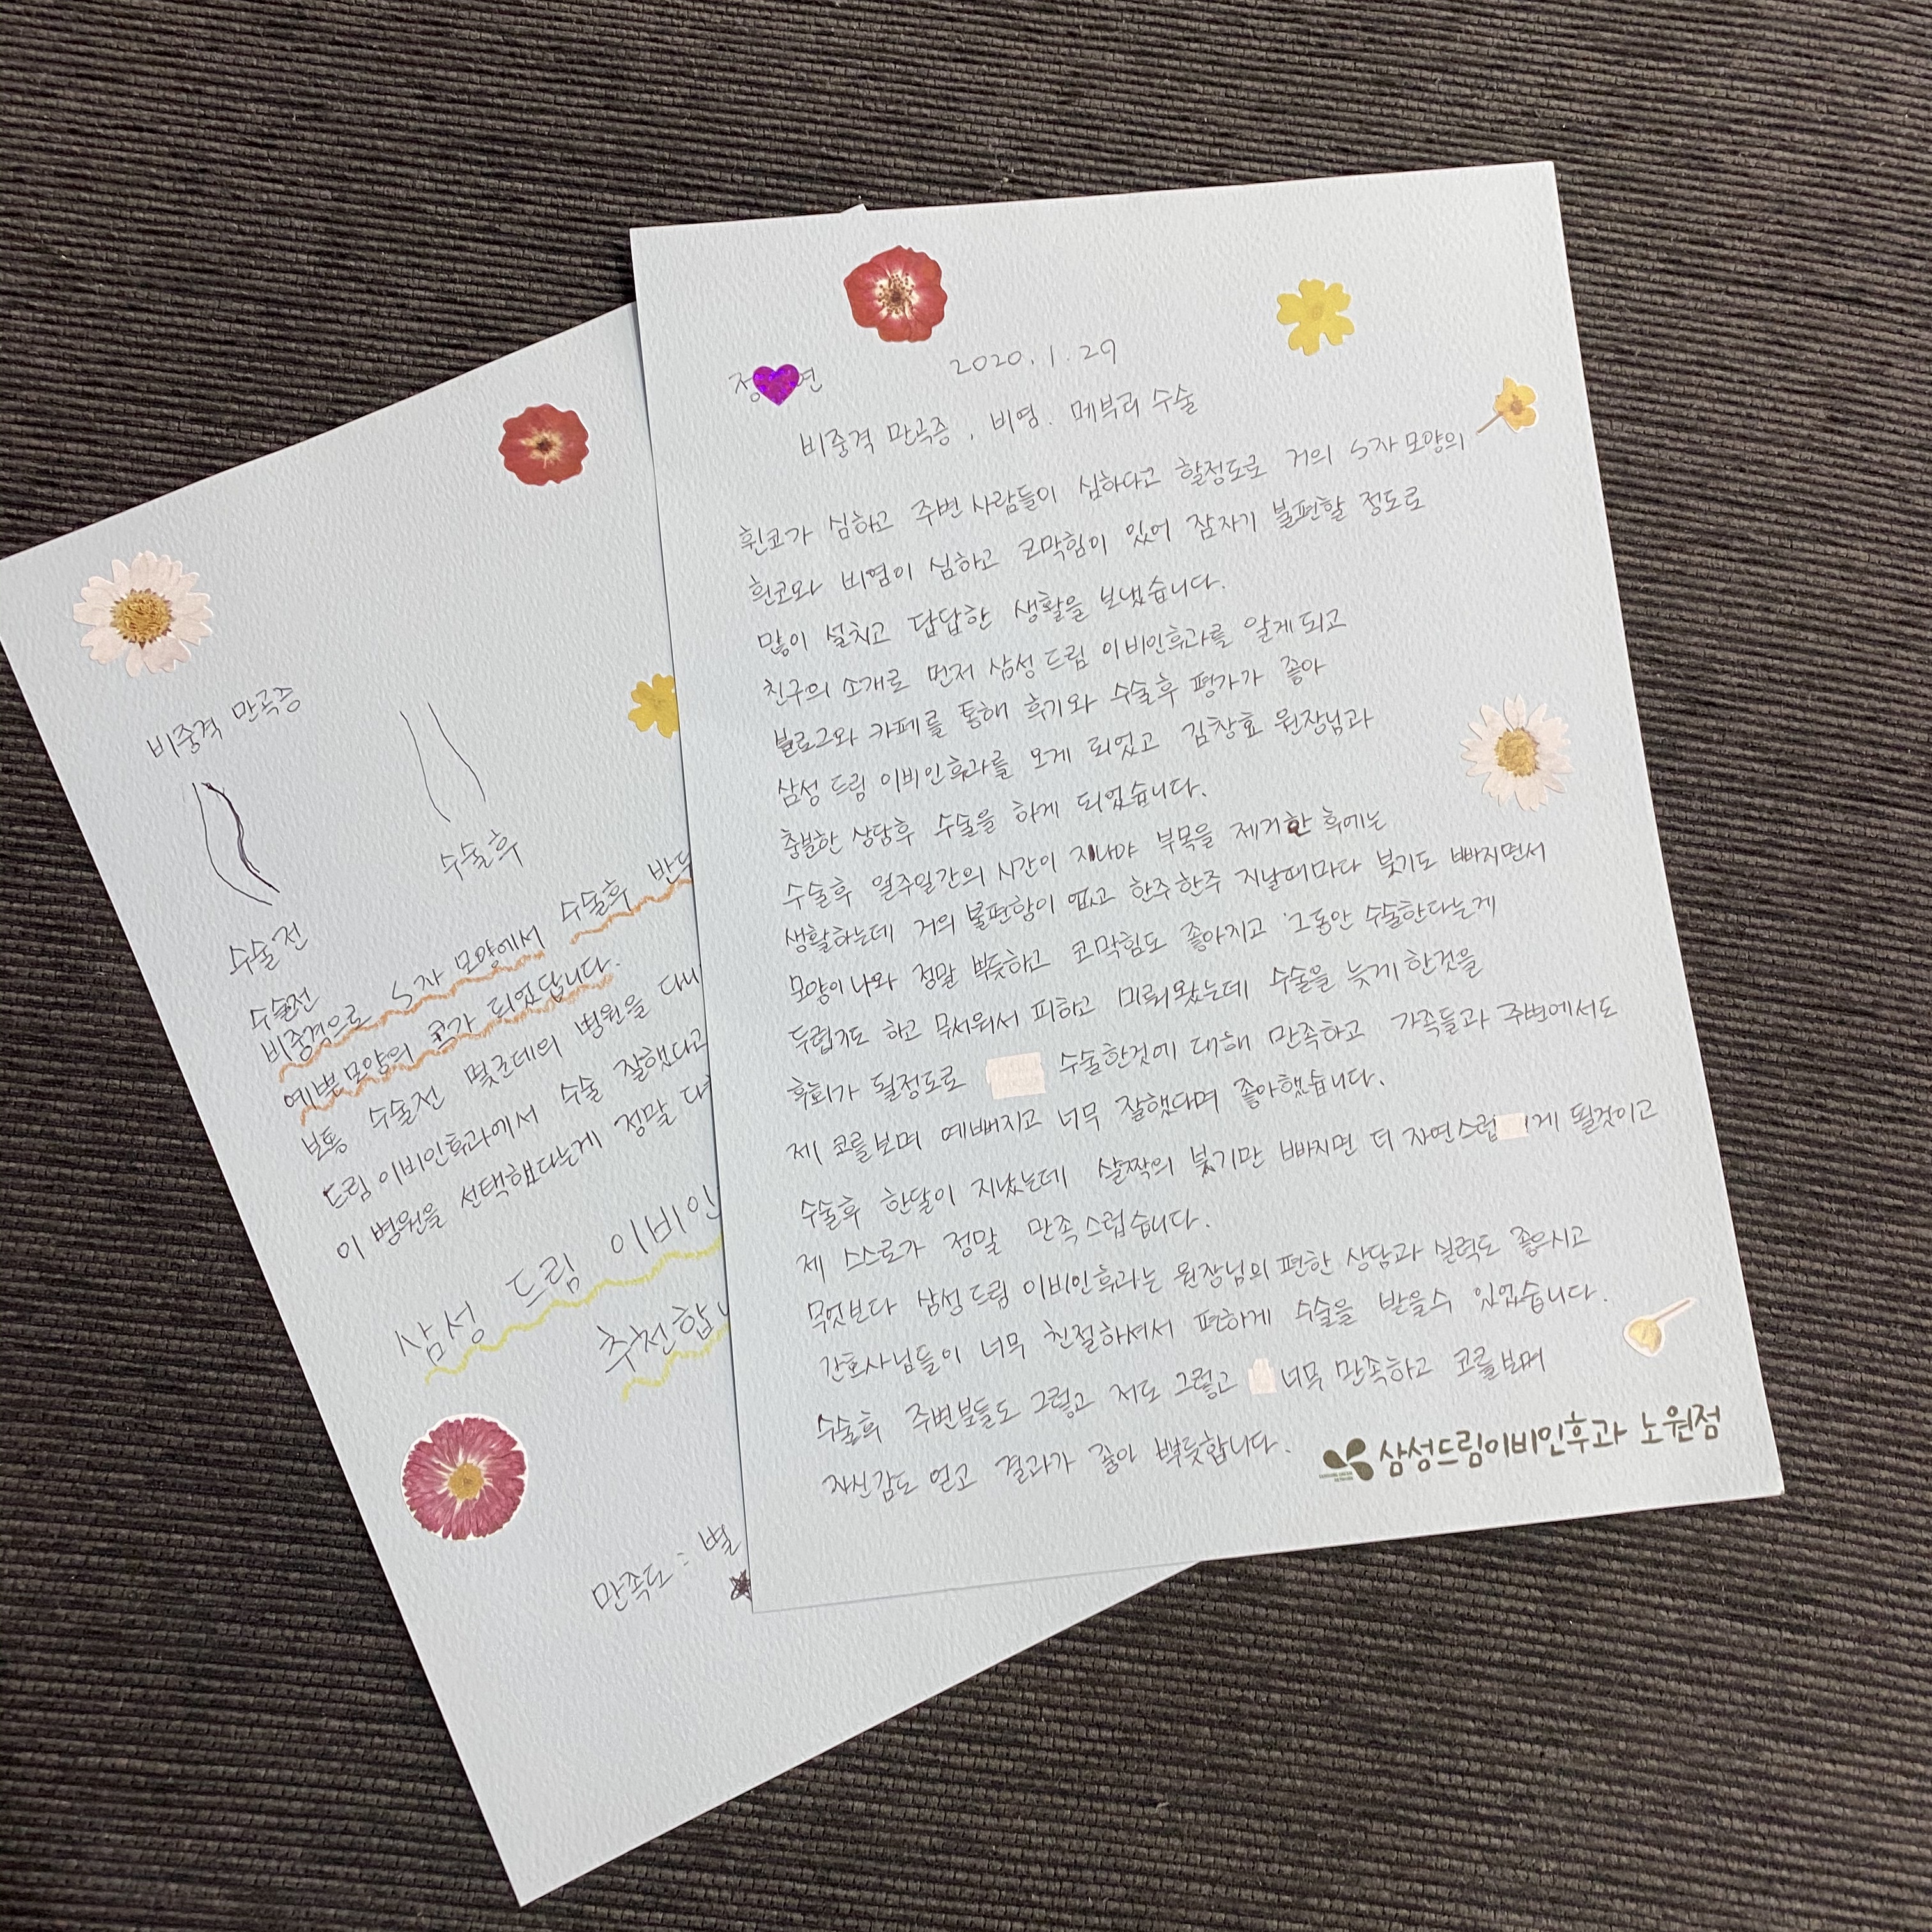 정 연
2020. 1. 29
비중격 만곡증, 비염. 메부리 수술
휜코가 심하고 주변 사람들이 심하다고 할정도로 거의 S자 모양의
휜코와 비염이 심하고 코막힘이 있어 잠자기 불편할 정도로
많이 설치고 답답한 생활을 보냈습니다.
친구의 소개로 먼저 삼성 드림 이비인후과를 알게 되고
블로그와 카페를 통해 후기와 수술후 평가가 좋아
삼성 드림 이비인후과를 오게 되었고 김창효 원장님과
충분한 상담후 수술을 하게 되었습니다.
수술후 일주일간의 시간이 지나야 부목을 제거한 후에는
생활하는데 거의 불편함이 없고 한주한주 지날때마다 붓기도 빠지면서
모양이 나와 정말 뿌듯하고 코막힘도 좋아지고 그동안 수술한다는게
두렵기도 하고 무서워서 피하고 미뤄왔는데 수술을 늦게 한것을
후회가 될정도로 수술한것에 대해 만족하고 가족들과 주변에서도
제 코를 보며 예뻐지고 너무 잘했다며 좋아했습니다.
수술후 한달이 지났는데 살짝의 붓기만 빠지면 더 자연스럽 게 될것이고
제 스스로가 정말 만족스럽습니다.
무엇보다 삼성드림 이비인후과는 원장님의 편한 상담과 실력도 좋으시고
간호사님들이 너무 친절하셔서 편하게 수술을 받을수 있었습니다.
수술후 주변분들도 그렇고 저도 그렇고 너무 만족하고 코를 보며
자신감도 얻고 결과가 좋아 뿌듯합니다.
삼성드림이비인후과 노원점
비중격 만곡증
수술전
수술후
수술전
비중격으로 S자 모양에서 수술후 반듯
예쁜 모양의 코가 되었답니다.
보통 수술전 몇군데의 병원을 다니
드림 이비인후과에서 수술 잘했다고
이 병원을 선택했다는게 정말 다
삼성 드림 이비인
추천합니
만족도 : 별